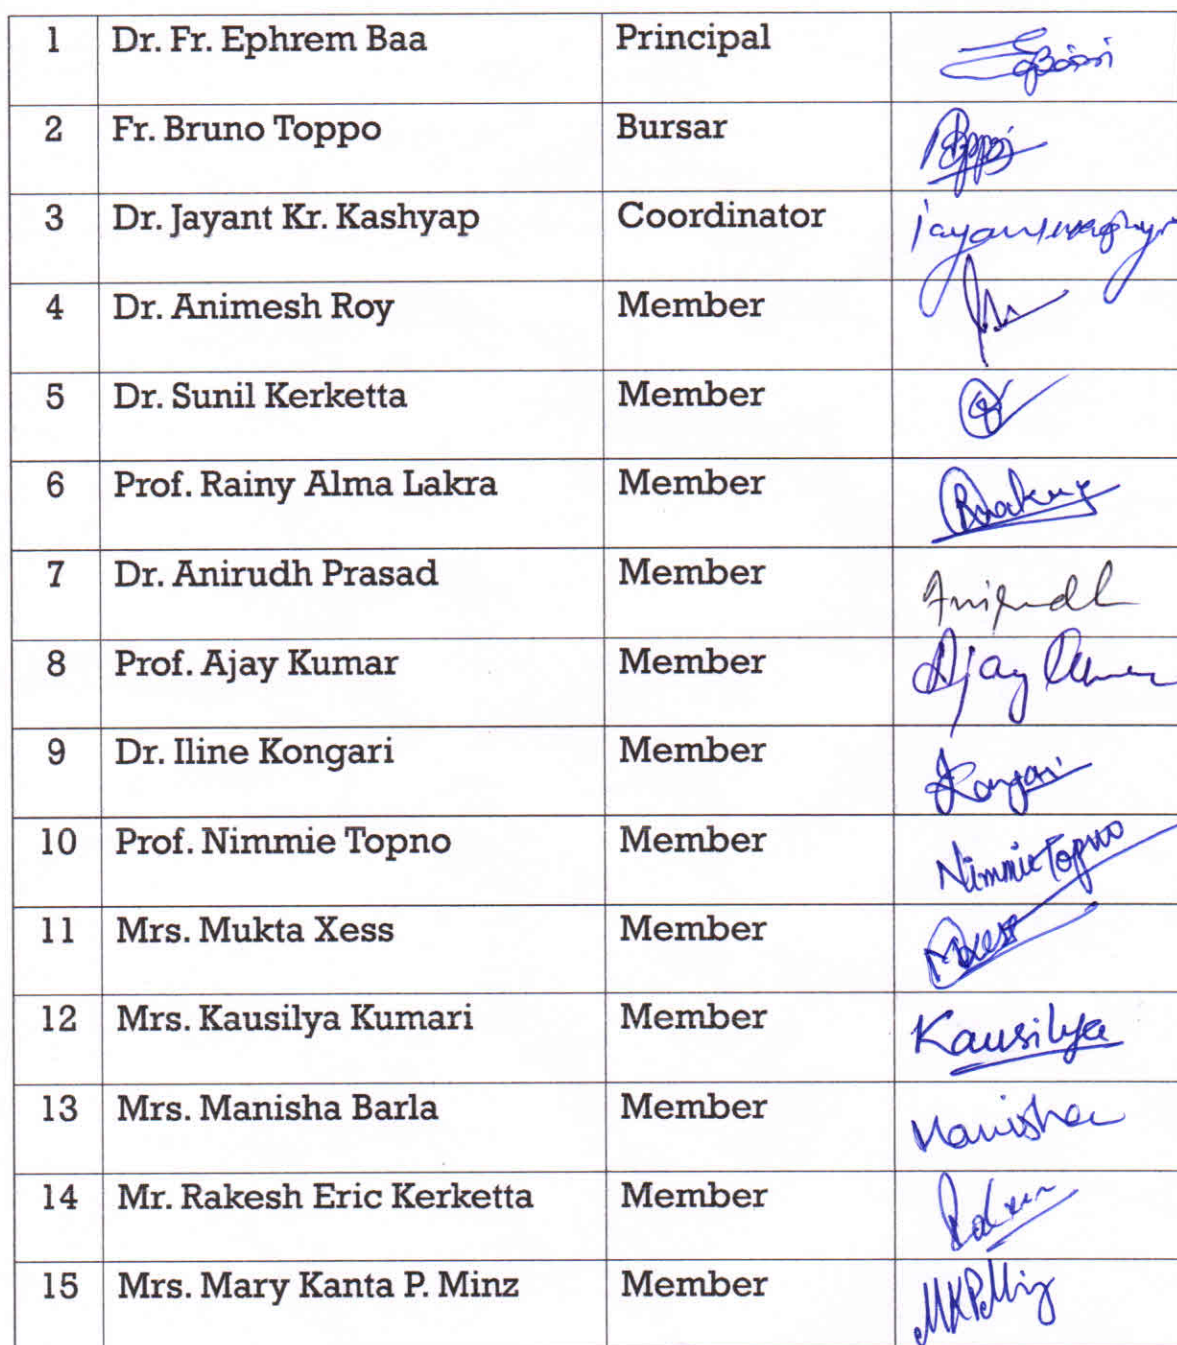 1 Dr. Fr. Ephrem Baa Principal
2 Fr. Bruno Toppo Bursar
3 Dr. Jayant Kr. Kashyap Coordinator
4 Dr. Animesh Roy Member
5 Dr. Sunil Kerketta Member
6 Prof. Rainy Alma Lakra Member
7 Dr. Anirudh Prasad Member Anirudh
8 Prof. Ajay Kumar Member Ajay
9 Dr. Iline Kongari Member Kongari
10 Prof. Nimmie Topno Member Nimmie Topno
11 Mrs. Mukta Xess Member
12 Mrs. Kausilya Kumari Member Kausilya
13 Mrs. Manisha Barla Member Manisha
14 Mr. Rakesh Eric Kerketta Member
15 Mrs. Mary Kanta P. Minz Member MKPMinz